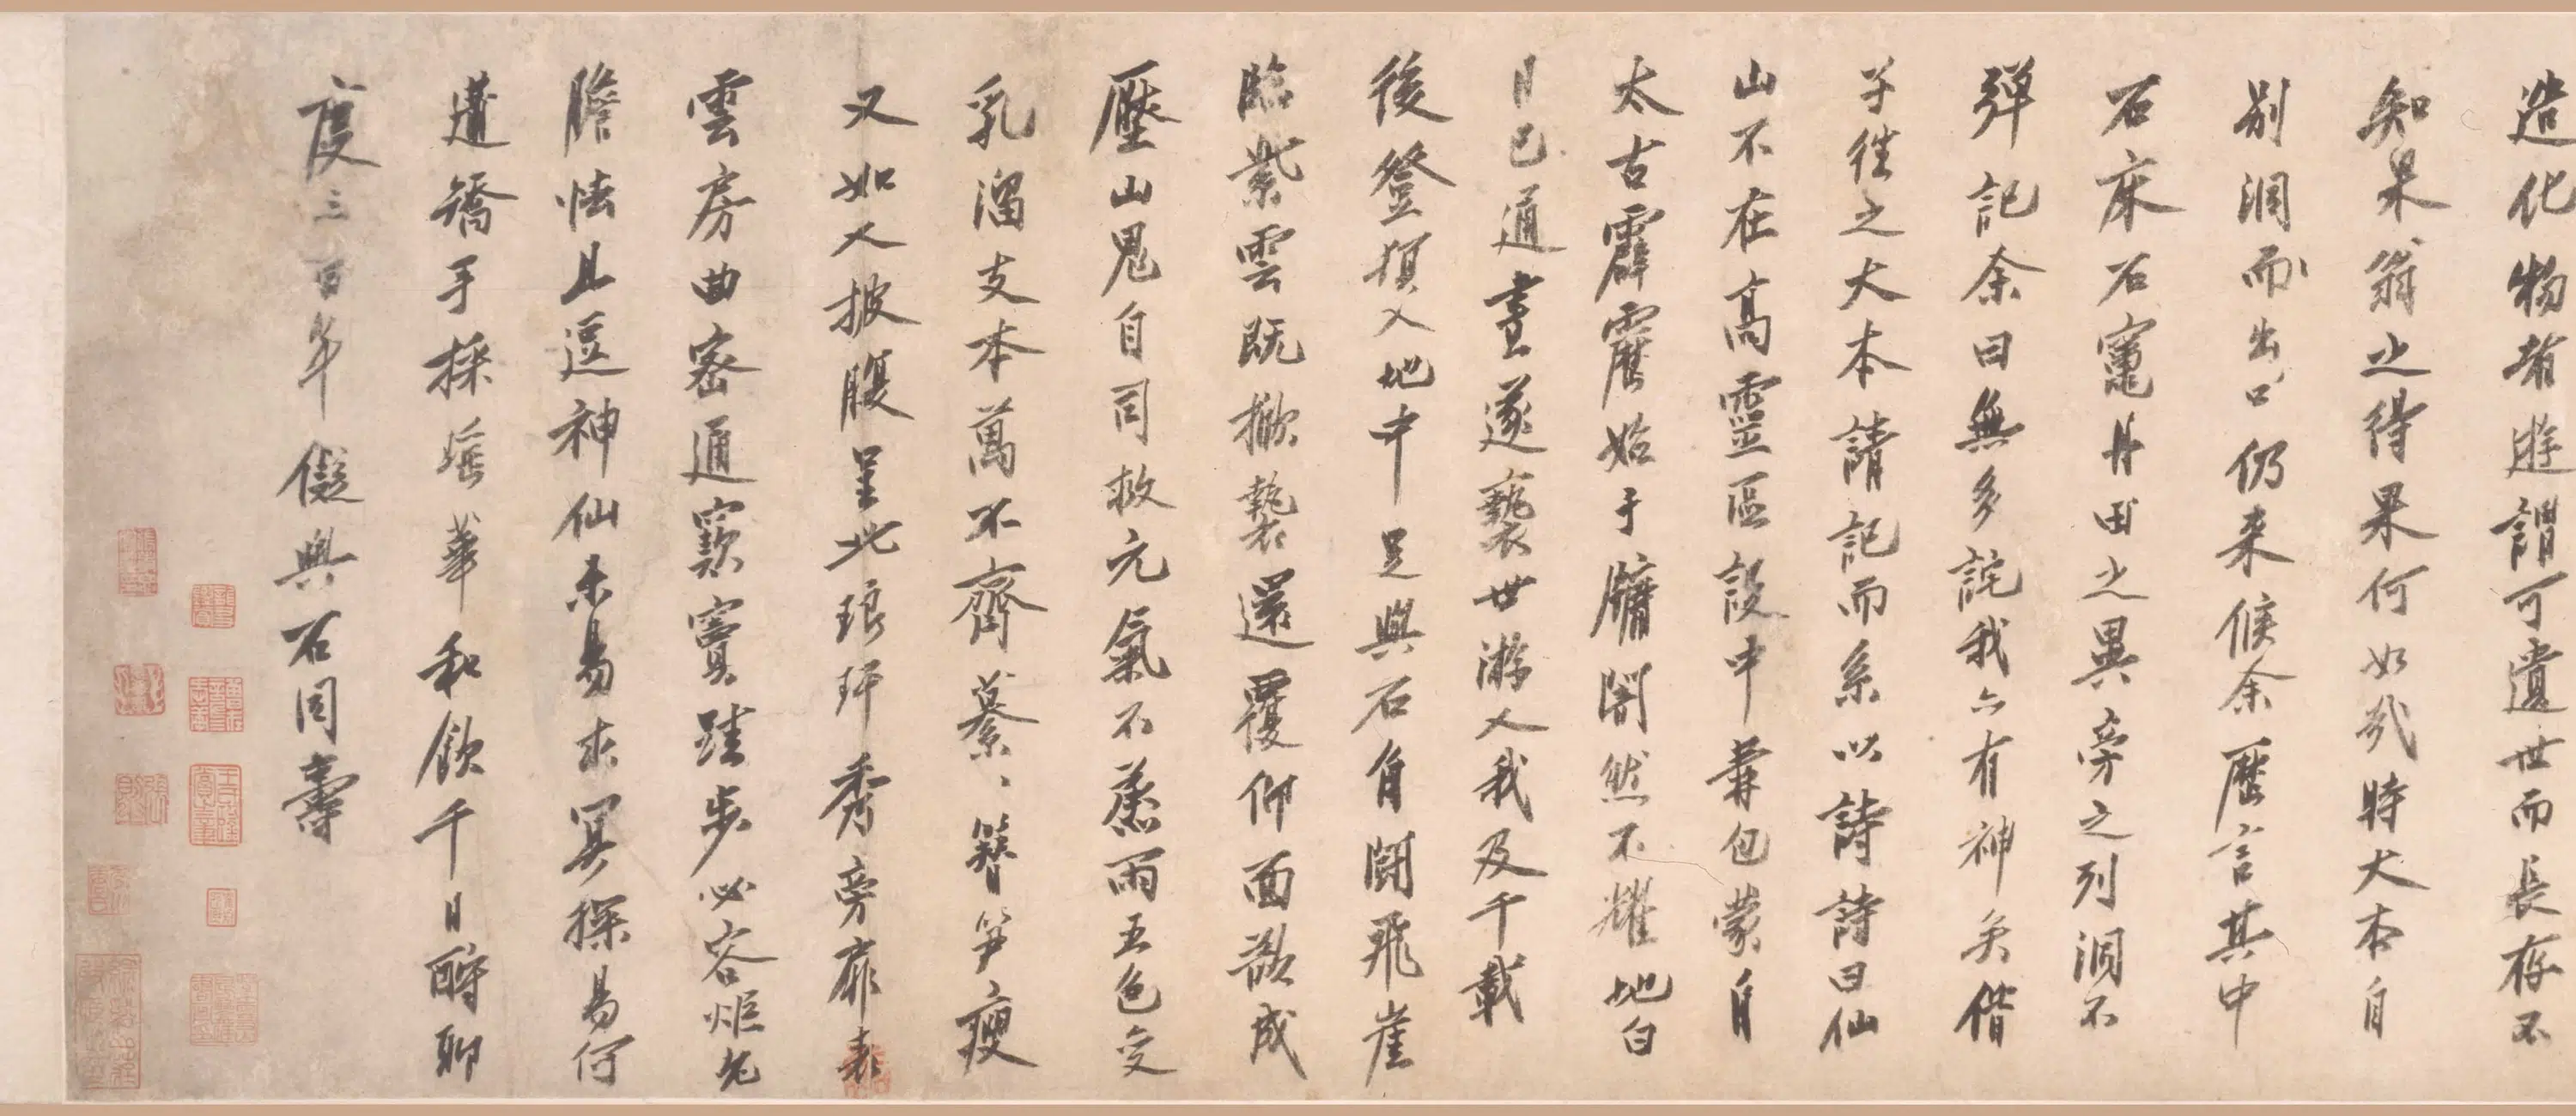 造化物者遊謂可遺世而長存不
知杲翁之得果何如我時大本自
別洞而出口仍来候余歷言其中
石床石竈丹田之異旁之列洞不
彈記余曰無多詫我亦有神矣偕
子徃之大本請記而系以詩詩曰仙
山不在高靈區設中彝包蒙自
太古霹靂始于牖闇然不耀地白
日已通晝遂褻世游人我及千載
後登損入地中足與石角鬪飛崖
臨紫雲既撤褻還覆仰面欲成
壓山鬼自司救元氣不蒸雨五色交
乳溜支本萬不齊蔂蔂簪笋瘦
又如人披腹呈此琅玕秀旁扉表
雲房曲密通窾竇跬步必容炬先
膽怯且逗神仙未易求冥探易何
遘矯手採瑤華和飲千日酎聊
度三百年儗與石同壽